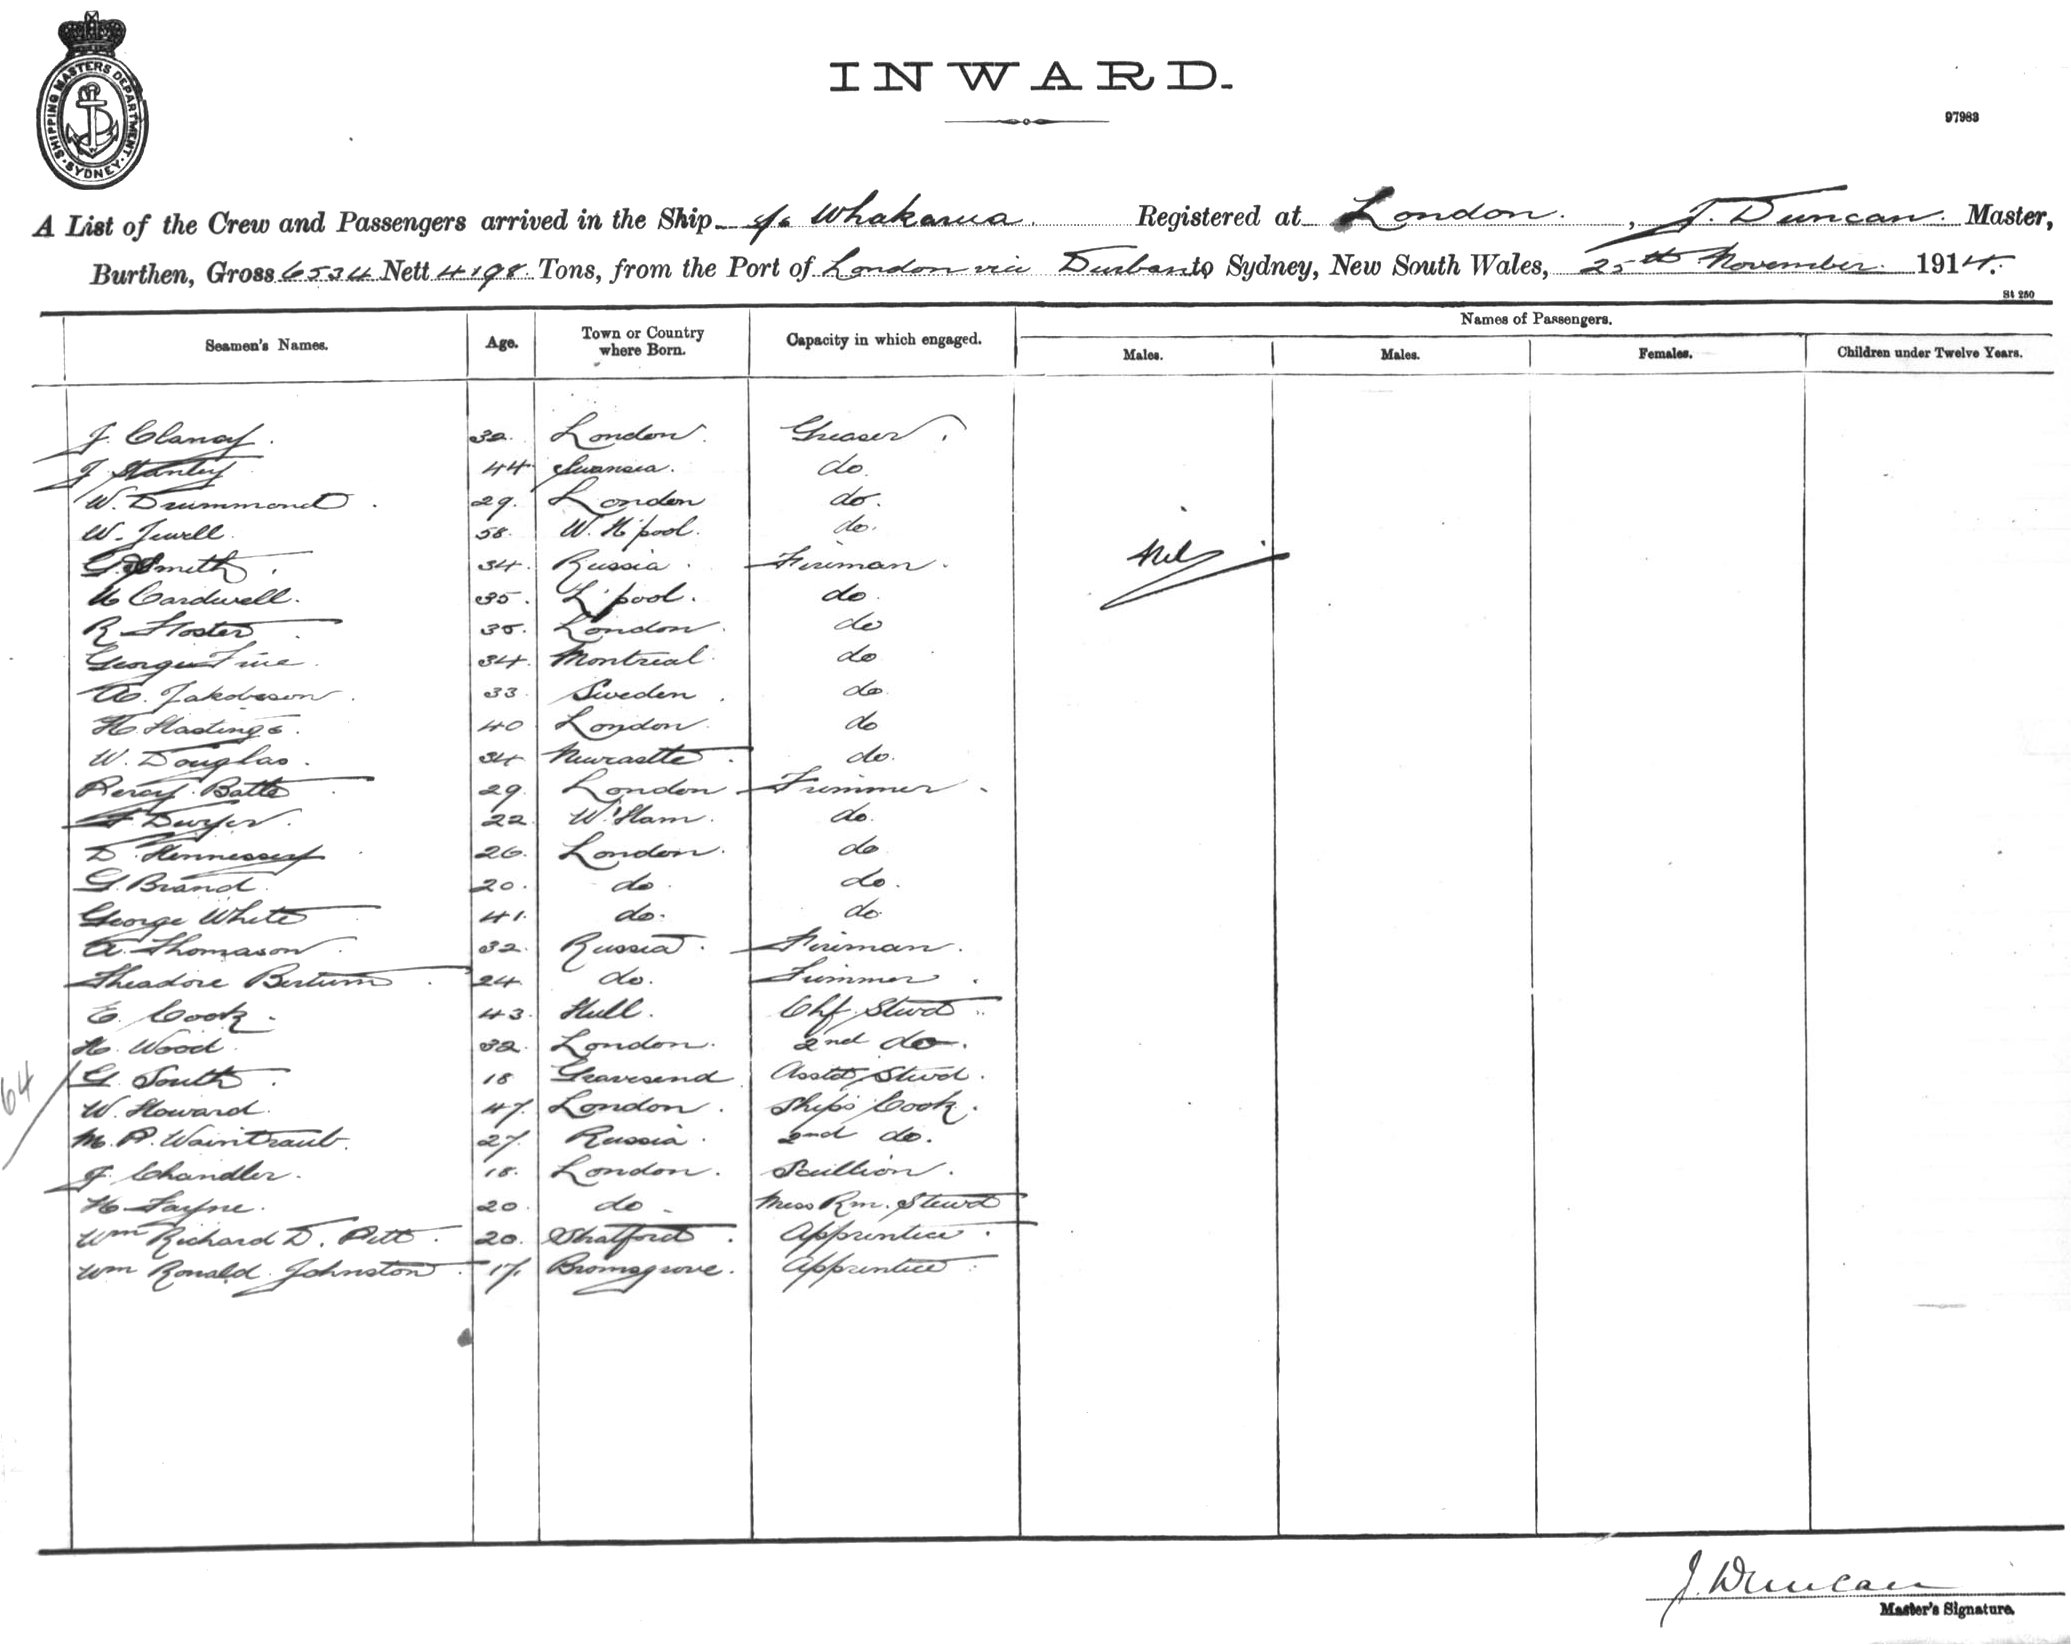 SHIPPING MASTERS DEPARTMENT · SYDNEY ·
INWARD.
97983
A List of the Crew and Passengers arrived in the Ship s/s Whakarua Registered at London. , J. Duncan. Master,
Burthen, Gross 6534 Nett 4198 Tons, from the Port of London via Durban to Sydney, New South Wales, 25th November 1914.
St 250
Seamen's Names. Age. Town or Country where Born. Capacity in which engaged. Names of Passengers.
Males. Males. Females. Children under Twelve Years.
J. Clancy. 32. London. Greaser.
J. Stanley 44 Swansea. do.
W. Drummond. 29. London do.
W. Jewell. 58. W. H'pool. do.
G. Smith. 34. Russia. Fireman.
Cardwell. 35. L'pool. do.
R Foster 35. London. do
George 34. Montreal. do
A. Jakobsson. 33. Sweden. do
H. Hastings. 40 London. do
W. Douglas. 34 Newcastle. do.
Percy Batts 29. London Trimmer.
F. Dwyer. 22. W. Ham. do.
D. Hennessey 26. London. do
G. Brand. 20. do. do.
George White 41. do. do.
A. Thomason. 32. Russia. Fireman.
Theadore 24. do. Trimmer.
E. Cook. 43. Hull. Chf. Stwd.
H. Wood. 32. London. 2nd do.
G. South. 18 Gravesend Asstd Stwd.
W. Howard. 47. London. Ship's Cook.
M. P. Waintraub. 27. Russia. 2nd do.
J. Chandler. 18. London. Scullion.
H. Fayne. 20 do. Mess Rm. Stewd
Wm Richard D. Pitt. 20. Stratford. Apprentice.
Wm Ronald Johnston. 17. Bromsgrove. Apprentice.
Nil
64
J. Duncan
Master's Signature.